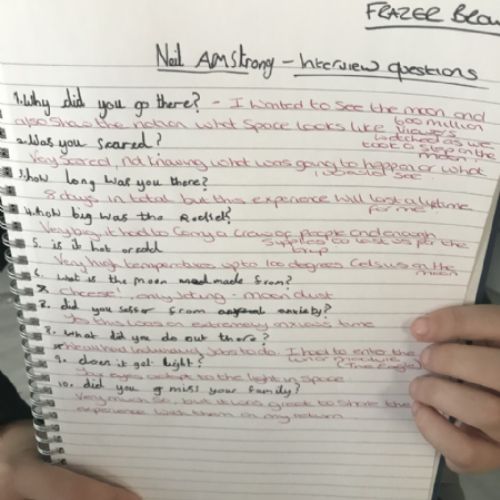 FRAZER Brow
Neil AMStrong - Interview questions
1. Why did you go there? - I wanted to see the moon and
also show the nation what space looks like 600 million viewers
watched as we took a step on the moon!
2. Was you scared?
Very scared, not knowing what was going to happen or what I would see
3. How long was you there?
8 days in total but this experience will last a lifetime for me
4. How big was the Rocket?
Very big, it had to carry a crew of people and enough supplies to last us for the trip
5. is it hot or cold
Very high temperatures upto 100 degrees Celsius on the moon
6. what is the moon made from?
Cheese!, only joking - moon dust
did you suffer from anxiety?
Yes this was an extremely anxious time
8. What did you do out there?
we all had individual jobs to do. I had to enter the
(The Eagle)
9. does it get light?
Your eyes adapt to the light in space
10. did you miss your family?
Very much so, but it was great to share the
experience with them on my return